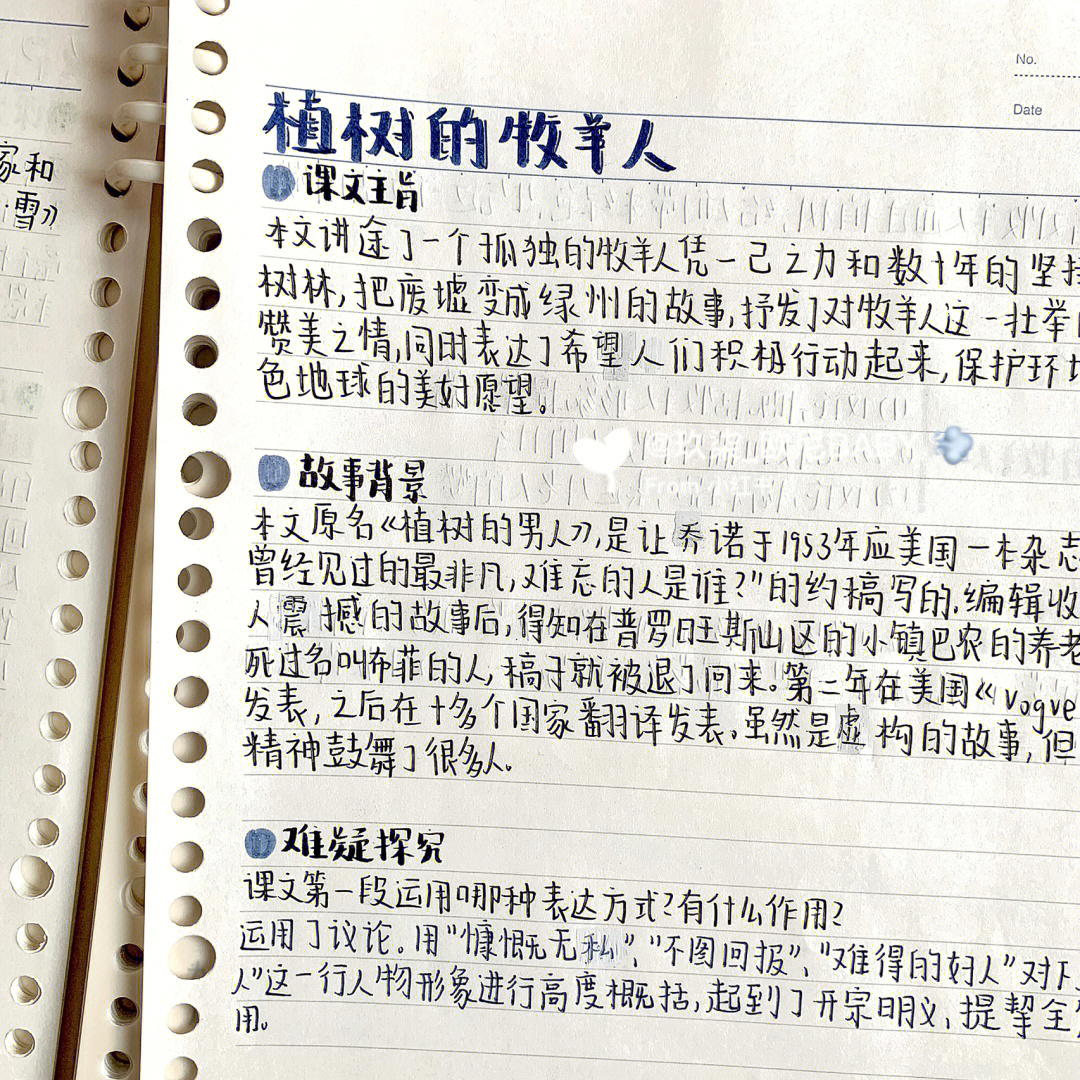 No.
Date
家和
雪》
植树的牧羊人
课文主旨
本文讲述了一个孤独的牧羊人凭一己之力和数十年的坚持
树林,把废墟变成绿洲的故事,抒发了对牧羊人这一壮举
赞美之情,同时表达了希望人们积极行动起来,保护环境
色地球的美好愿望。
故事背景
本文原名《植树的男人》,是让乔诺于1953年应美国一本杂志
曾经见过的最非凡,难忘的人是谁?"的约稿写的.编辑收
人震撼的故事后,得知在普罗旺斯山区的小镇巴农的养老
死过名叫布菲的人,稿子就被退了回来。第二年在美国《vogue
发表,之后在十多个国家翻译发表。虽然是虚构的故事,但
精神鼓舞了很多人。
难疑探究
课文第一段运用哪种表达方式?有什么作用?
运用了议论。用"慷慨无私"、"不图回报"、"难得的好人"对
人"这一行人物形象进行高度概括,起到了开宗明义、提挈全
用。
From 小红书